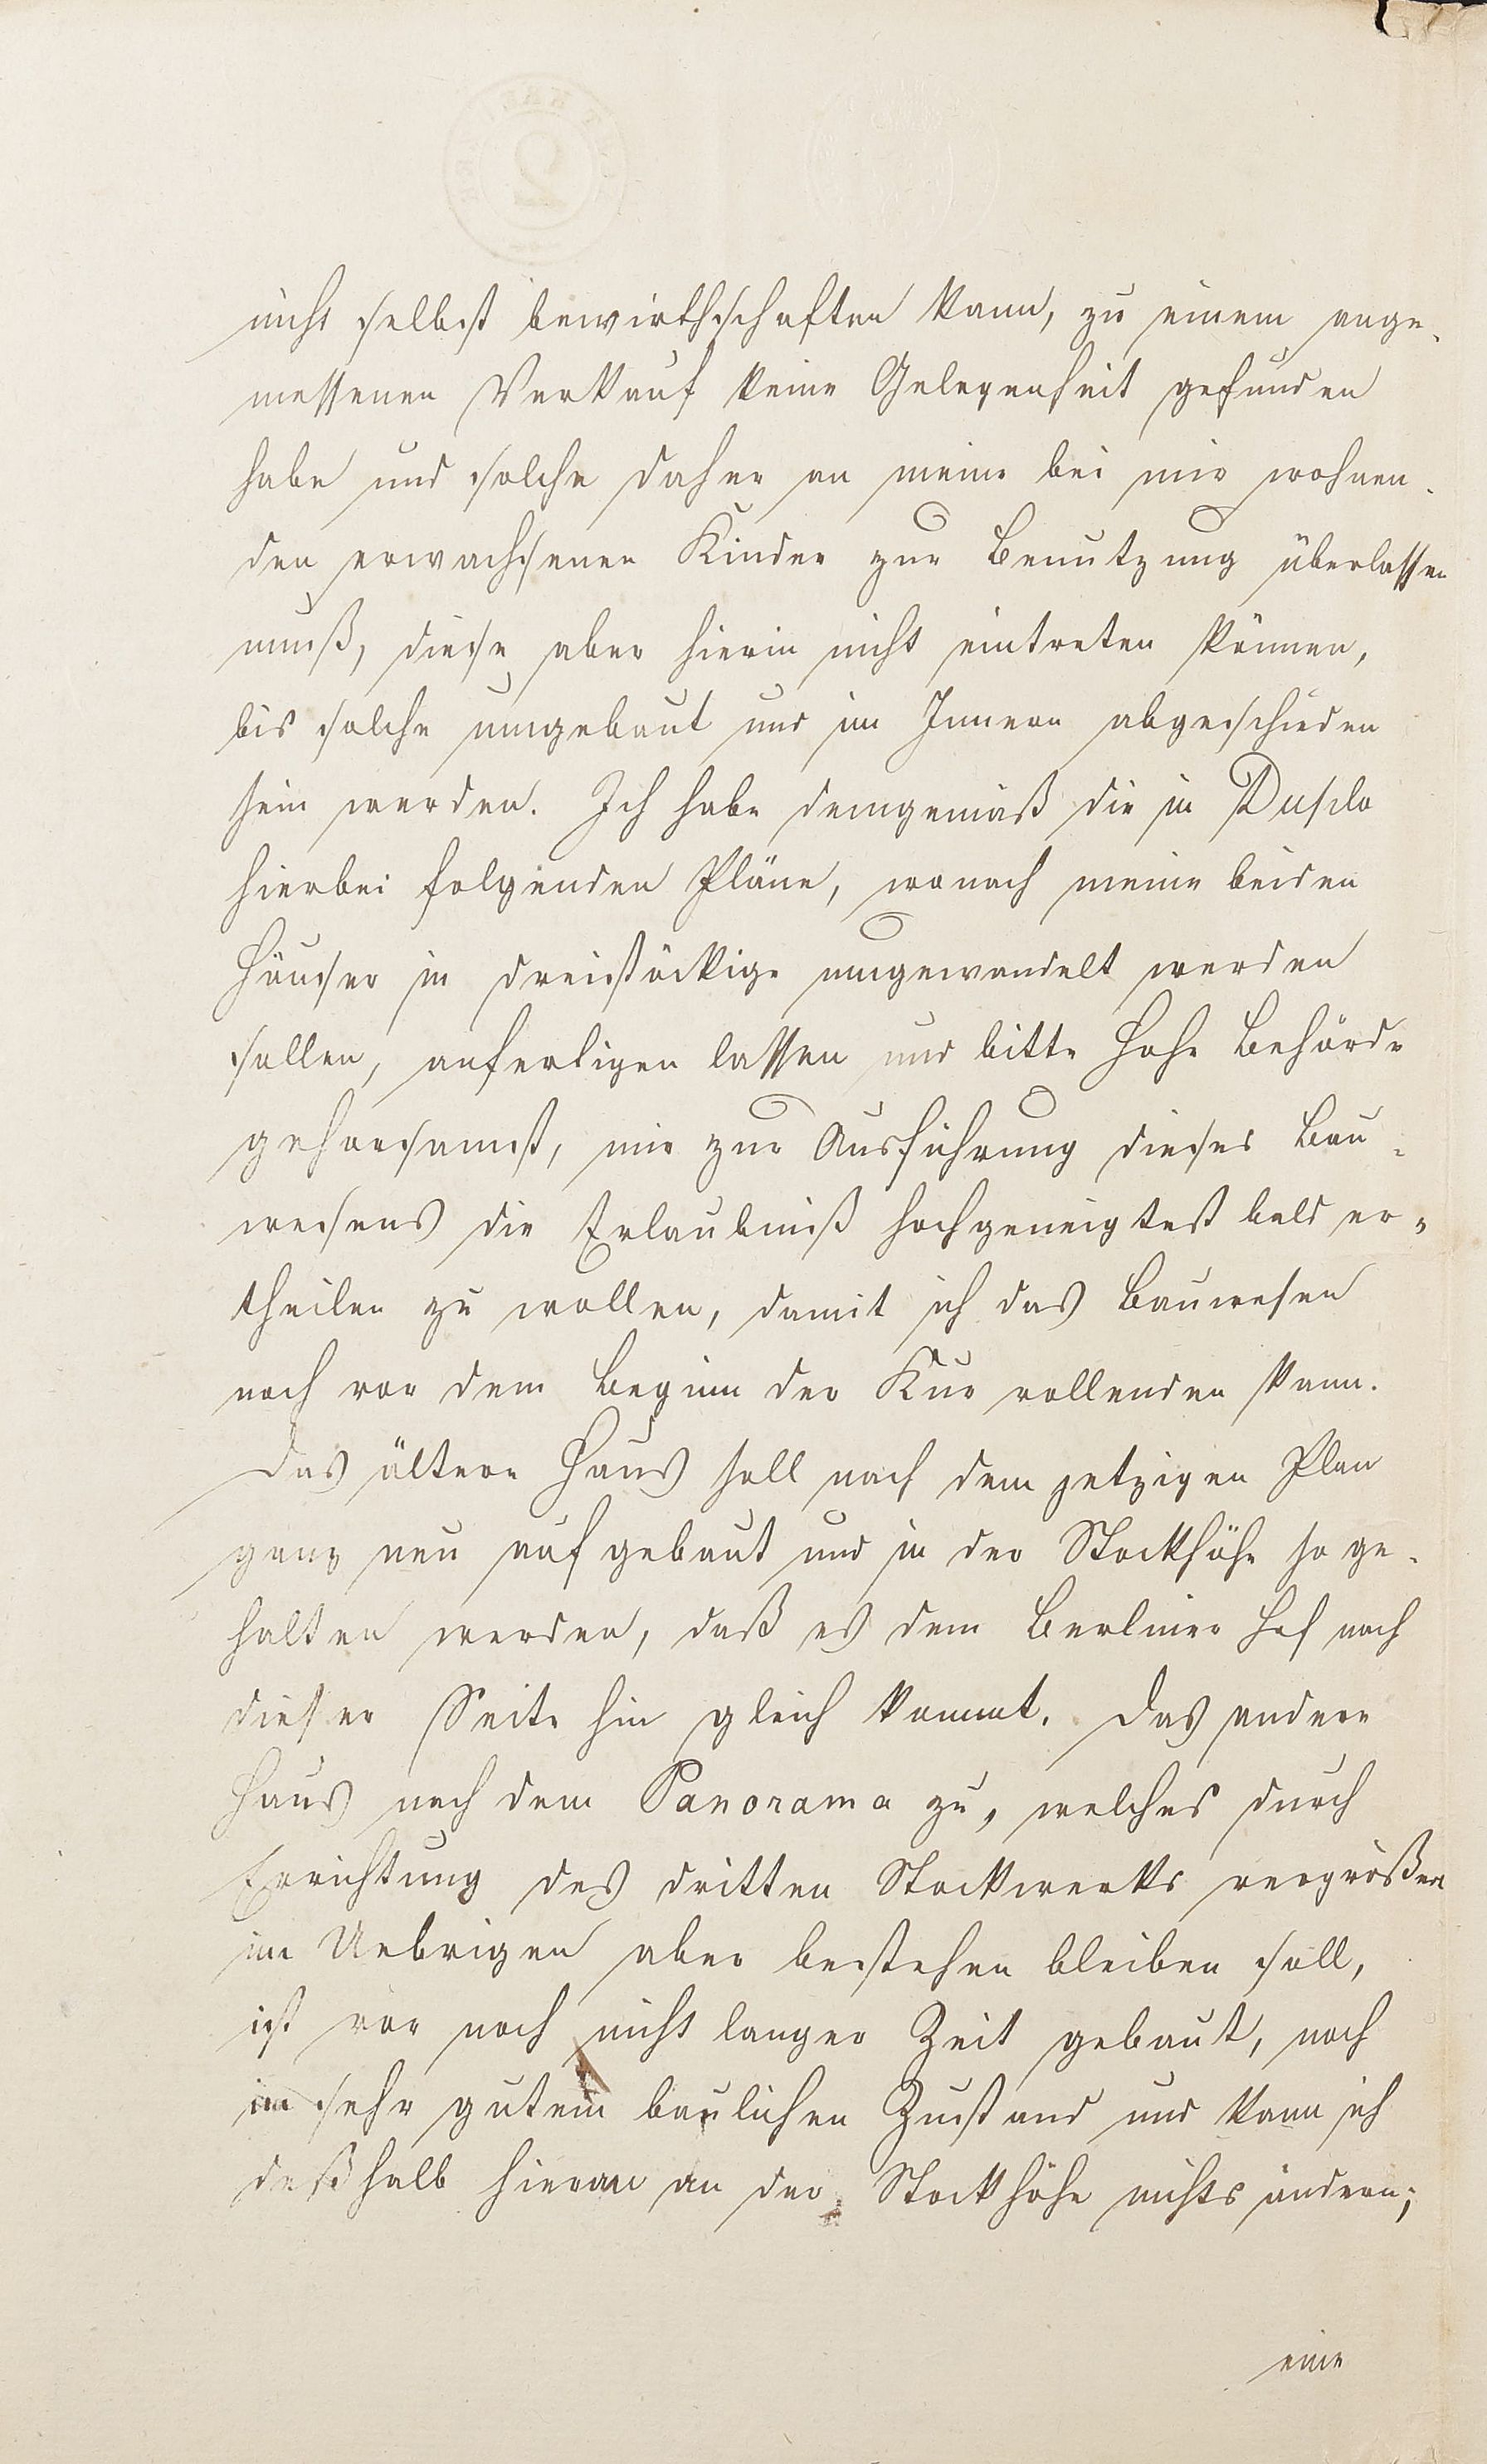 nicht selbst bewirthschaften kann, zu einem ange-
messenen Verkauf keine Gelegenheit gefunden
habe und solche daher an meine bei mir wohnen-
den erwachsenen Kinder zur Benutzung überlassen
muß, diese aber hierin nicht eintreten können,
bis solche umgebaut und im Innern abgeschieden
sein werden. Ich habe demgemäß die in Duplo
hierbei folgenden Pläne, wonach meine beiden
Häuser in dreistöckige umgewandelt werden
sollen, anfertigen lassen und bitte Hohe Behörde
gehorsamst, mir zur Ausführung dieses Bau-
wesens die Erlaubniß hochgeneigtest bald er-
theilen zu wollen, damit ich das Bauwesen
noch vor dem Beginn der Kur vollenden kann.
Das ältere Haus soll nach dem jetzigen Plan
ganz neu aufgebaut und in der Stockhöhe so ge-
halten werden, daß es dem Berliner Hof nach
dieser Seite hin gleich kommt. Das andere
Haus nach dem Panorama zu, welches durch
Errichtung des dritten Stockwerks vergrößert
im Uebrigen aber bestehen bleiben soll,
ist vor noch nicht langer Zeit gebaut, noch
in sehr gutem baulichen Zustand und kann ich
deßhalb hieran an der Stockhöhe nichts ändern;
eine